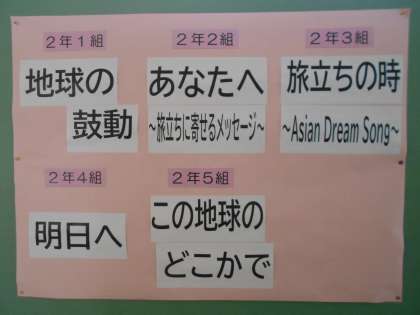 ２年１組
地球の
鼓動
２年２組
あなたへ
～旅立ちに寄せるメッセージ～
２年３組
旅立ちの時
～Asian Dream Song～
２年４組
明日へ
２年５組
この地球の
どこかで